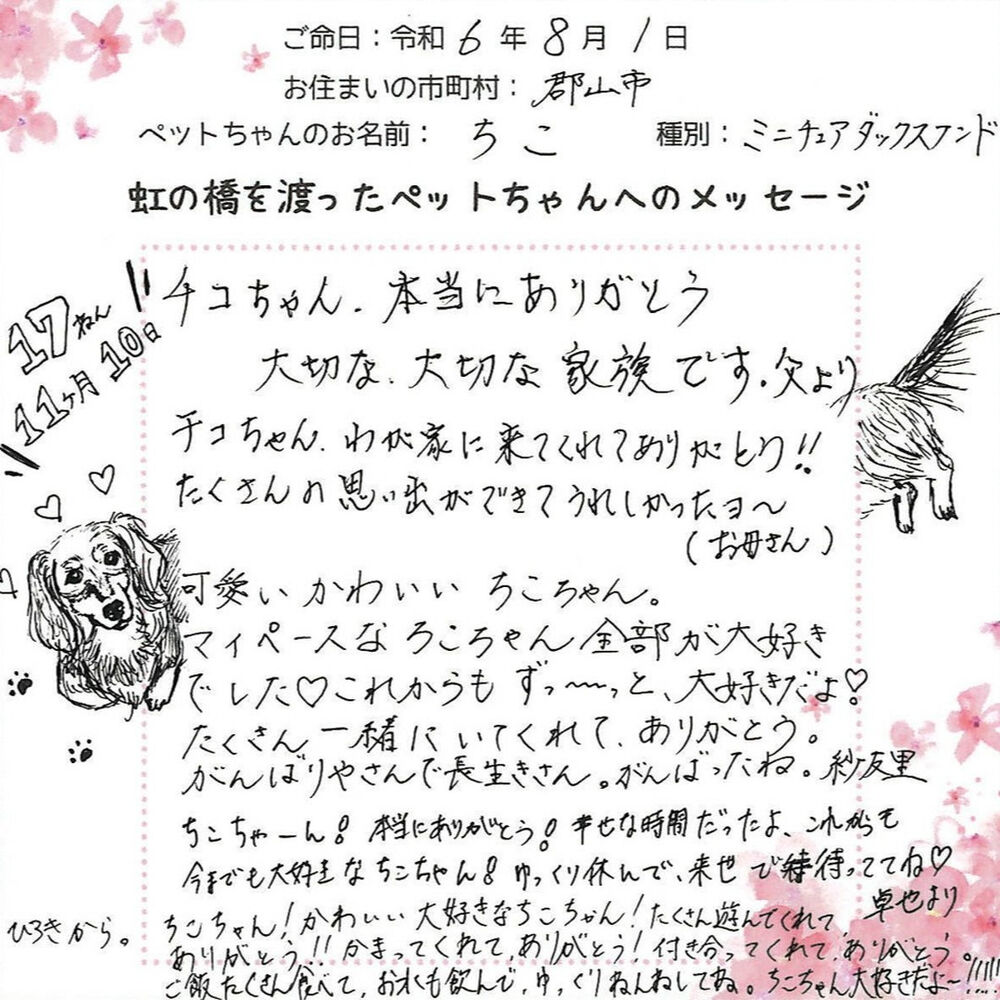 ご命日：令和 6 年 8 月 1 日
お住まいの市町村： 郡山市
ペットちゃんのお名前： ちこ 種別： ミニチュアダックスフンド
虹の橋を渡ったペットちゃんへのメッセージ
17ねん
11ヶ月 10日
チコちゃん、本当にありがとう
大切な、大切な家族です。父より
チコちゃん、わが家に来てくれてありがとう!!
たくさんの思い出ができてうれしかったヨ〜
(お母さん)
可愛いかわいいちこちゃん。
マイペースなちこちゃん全部が大好き
でした♡これからもずっ〜〜っと、大好きだよ♡
たくさん一緒にいてくれて、ありがとう。
がんばりやさんで長生きさん。がんばったね。紗友里
ちこちゃーん! 本当にありがとう! 幸せな時間だったよ、これからも
今までも大好きなちこちゃん! ゆっくり休んで、来世で待っててね♡
卓也より
ひろきから。
ちこちゃん! かわいい大好きなちこちゃん! たくさん遊んでくれて
ありがとう!! かまってくれて、ありがとう! 付き合ってくれて、ありがとう。
ご飯たくさん食べて、お水も飲んで、ゆっくりねんねしてね。ちこちゃん大好きだよ〜!!!!!